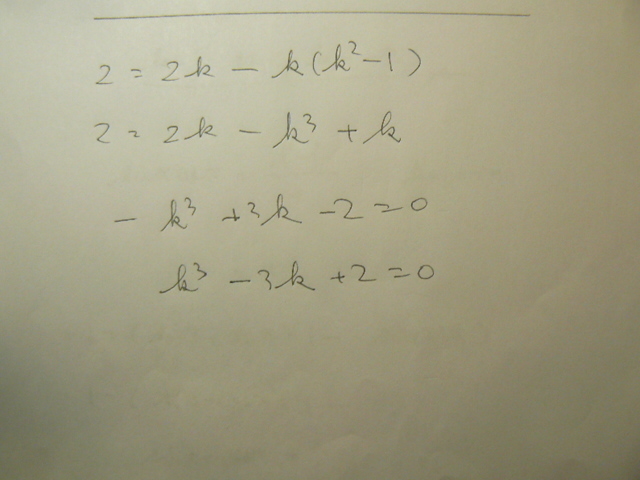 2 = 2k - k(k²-1)
2 = 2k - k³ + k
- k³ + 3k - 2 = 0
k³ - 3k + 2 = 0